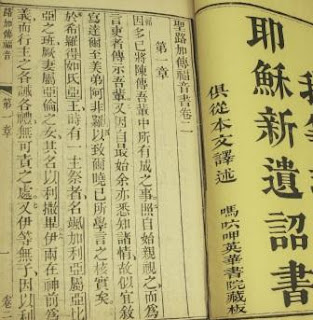 耶穌新遺詔書
俱從本文譯述
英華書院藏板
聖路加傳福音書卷
第一章
因多已將陳傳吾輩中所有成之事照自始親視之而為
言吏者傳示吾輩又因自最始余亦悉知諸情故似宜敘
寫達爾至美弟阿非羅以致爾曉已所學言之核實矣
於希羅得如氐亞王時有一主祭者名颯加利亞屬亞比
亞之班厥妻屬亞倫之女其名以利撒畢伊兩在神前為
義而行主之各誡各禮無可責之處又伊等無子因以利
路加傳福音 第一章 一